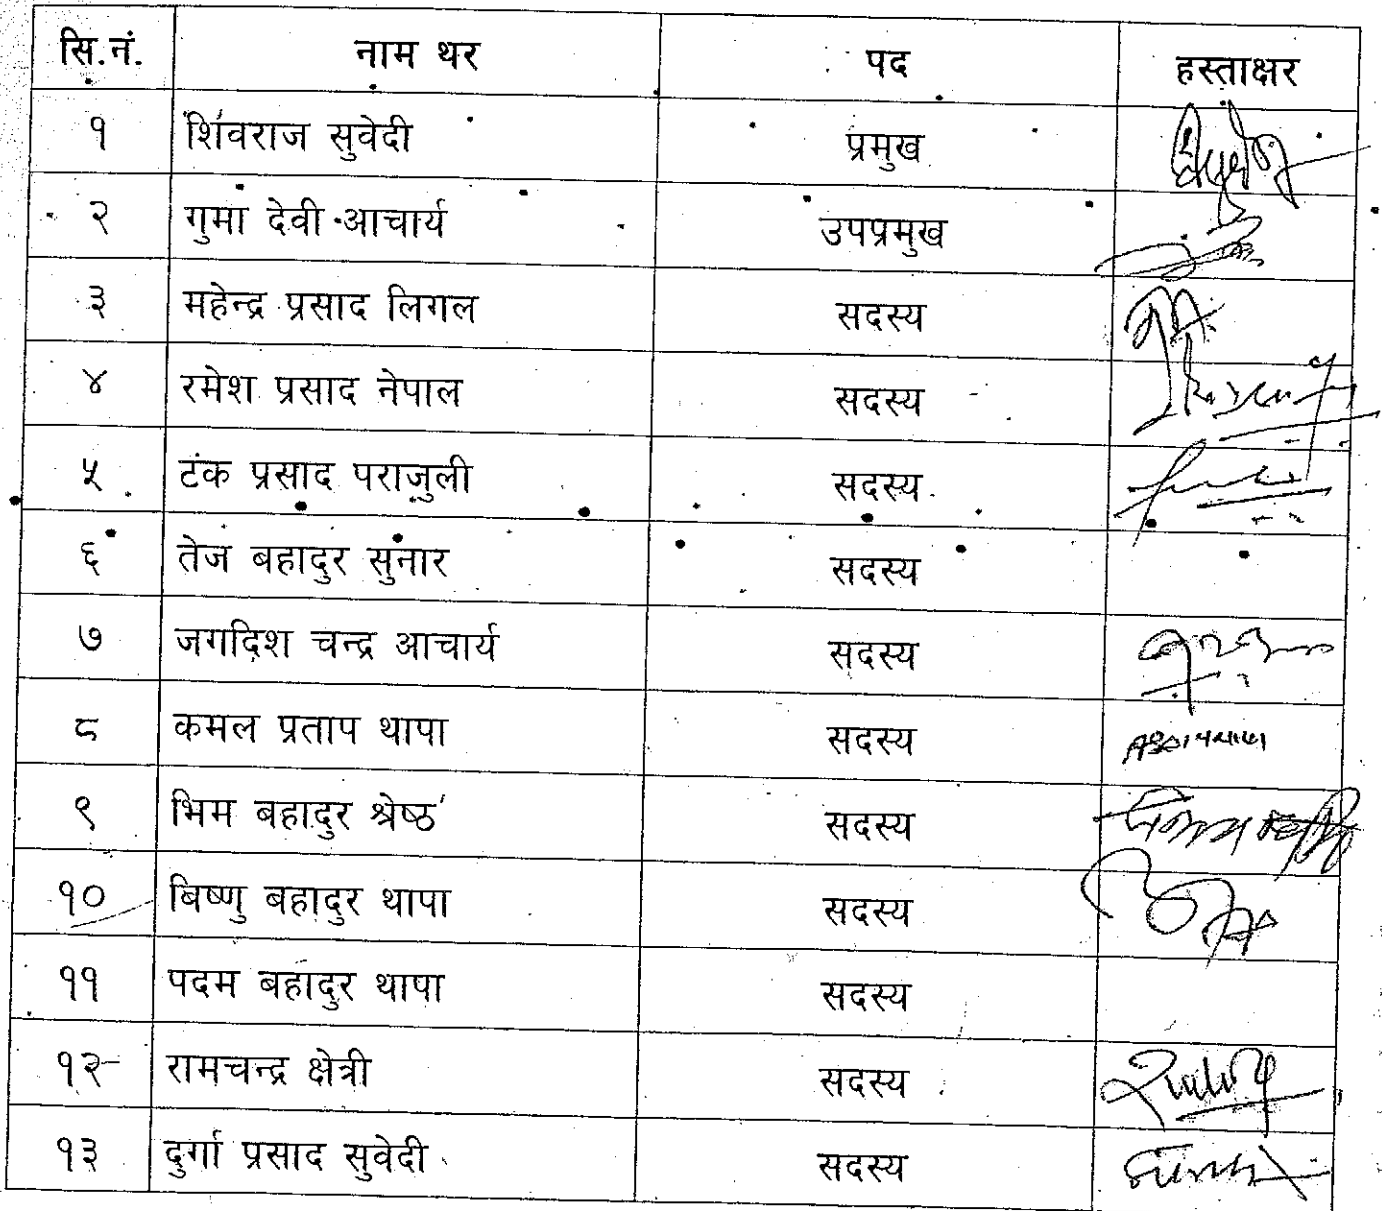 सि.नं. नाम थर पद हस्ताक्षर
१ शिवराज सुवेदी प्रमुख
२ गुमा देवी आचार्य उपप्रमुख
३ महेन्द्र प्रसाद लिगल सदस्य
४ रमेश प्रसाद नेपाल सदस्य
५ टंक प्रसाद पराजुली सदस्य
६ तेज बहादुर सुनार सदस्य
७ जगदिश चन्द्र आचार्य सदस्य
८ कमल प्रताप थापा सदस्य
९ भिम बहादुर श्रेष्ठ सदस्य
१० बिष्णु बहादुर थापा सदस्य
११ पदम बहादुर थापा सदस्य
१२ रामचन्द्र क्षेत्री सदस्य
१३ दुर्गा प्रसाद सुवेदी सदस्य